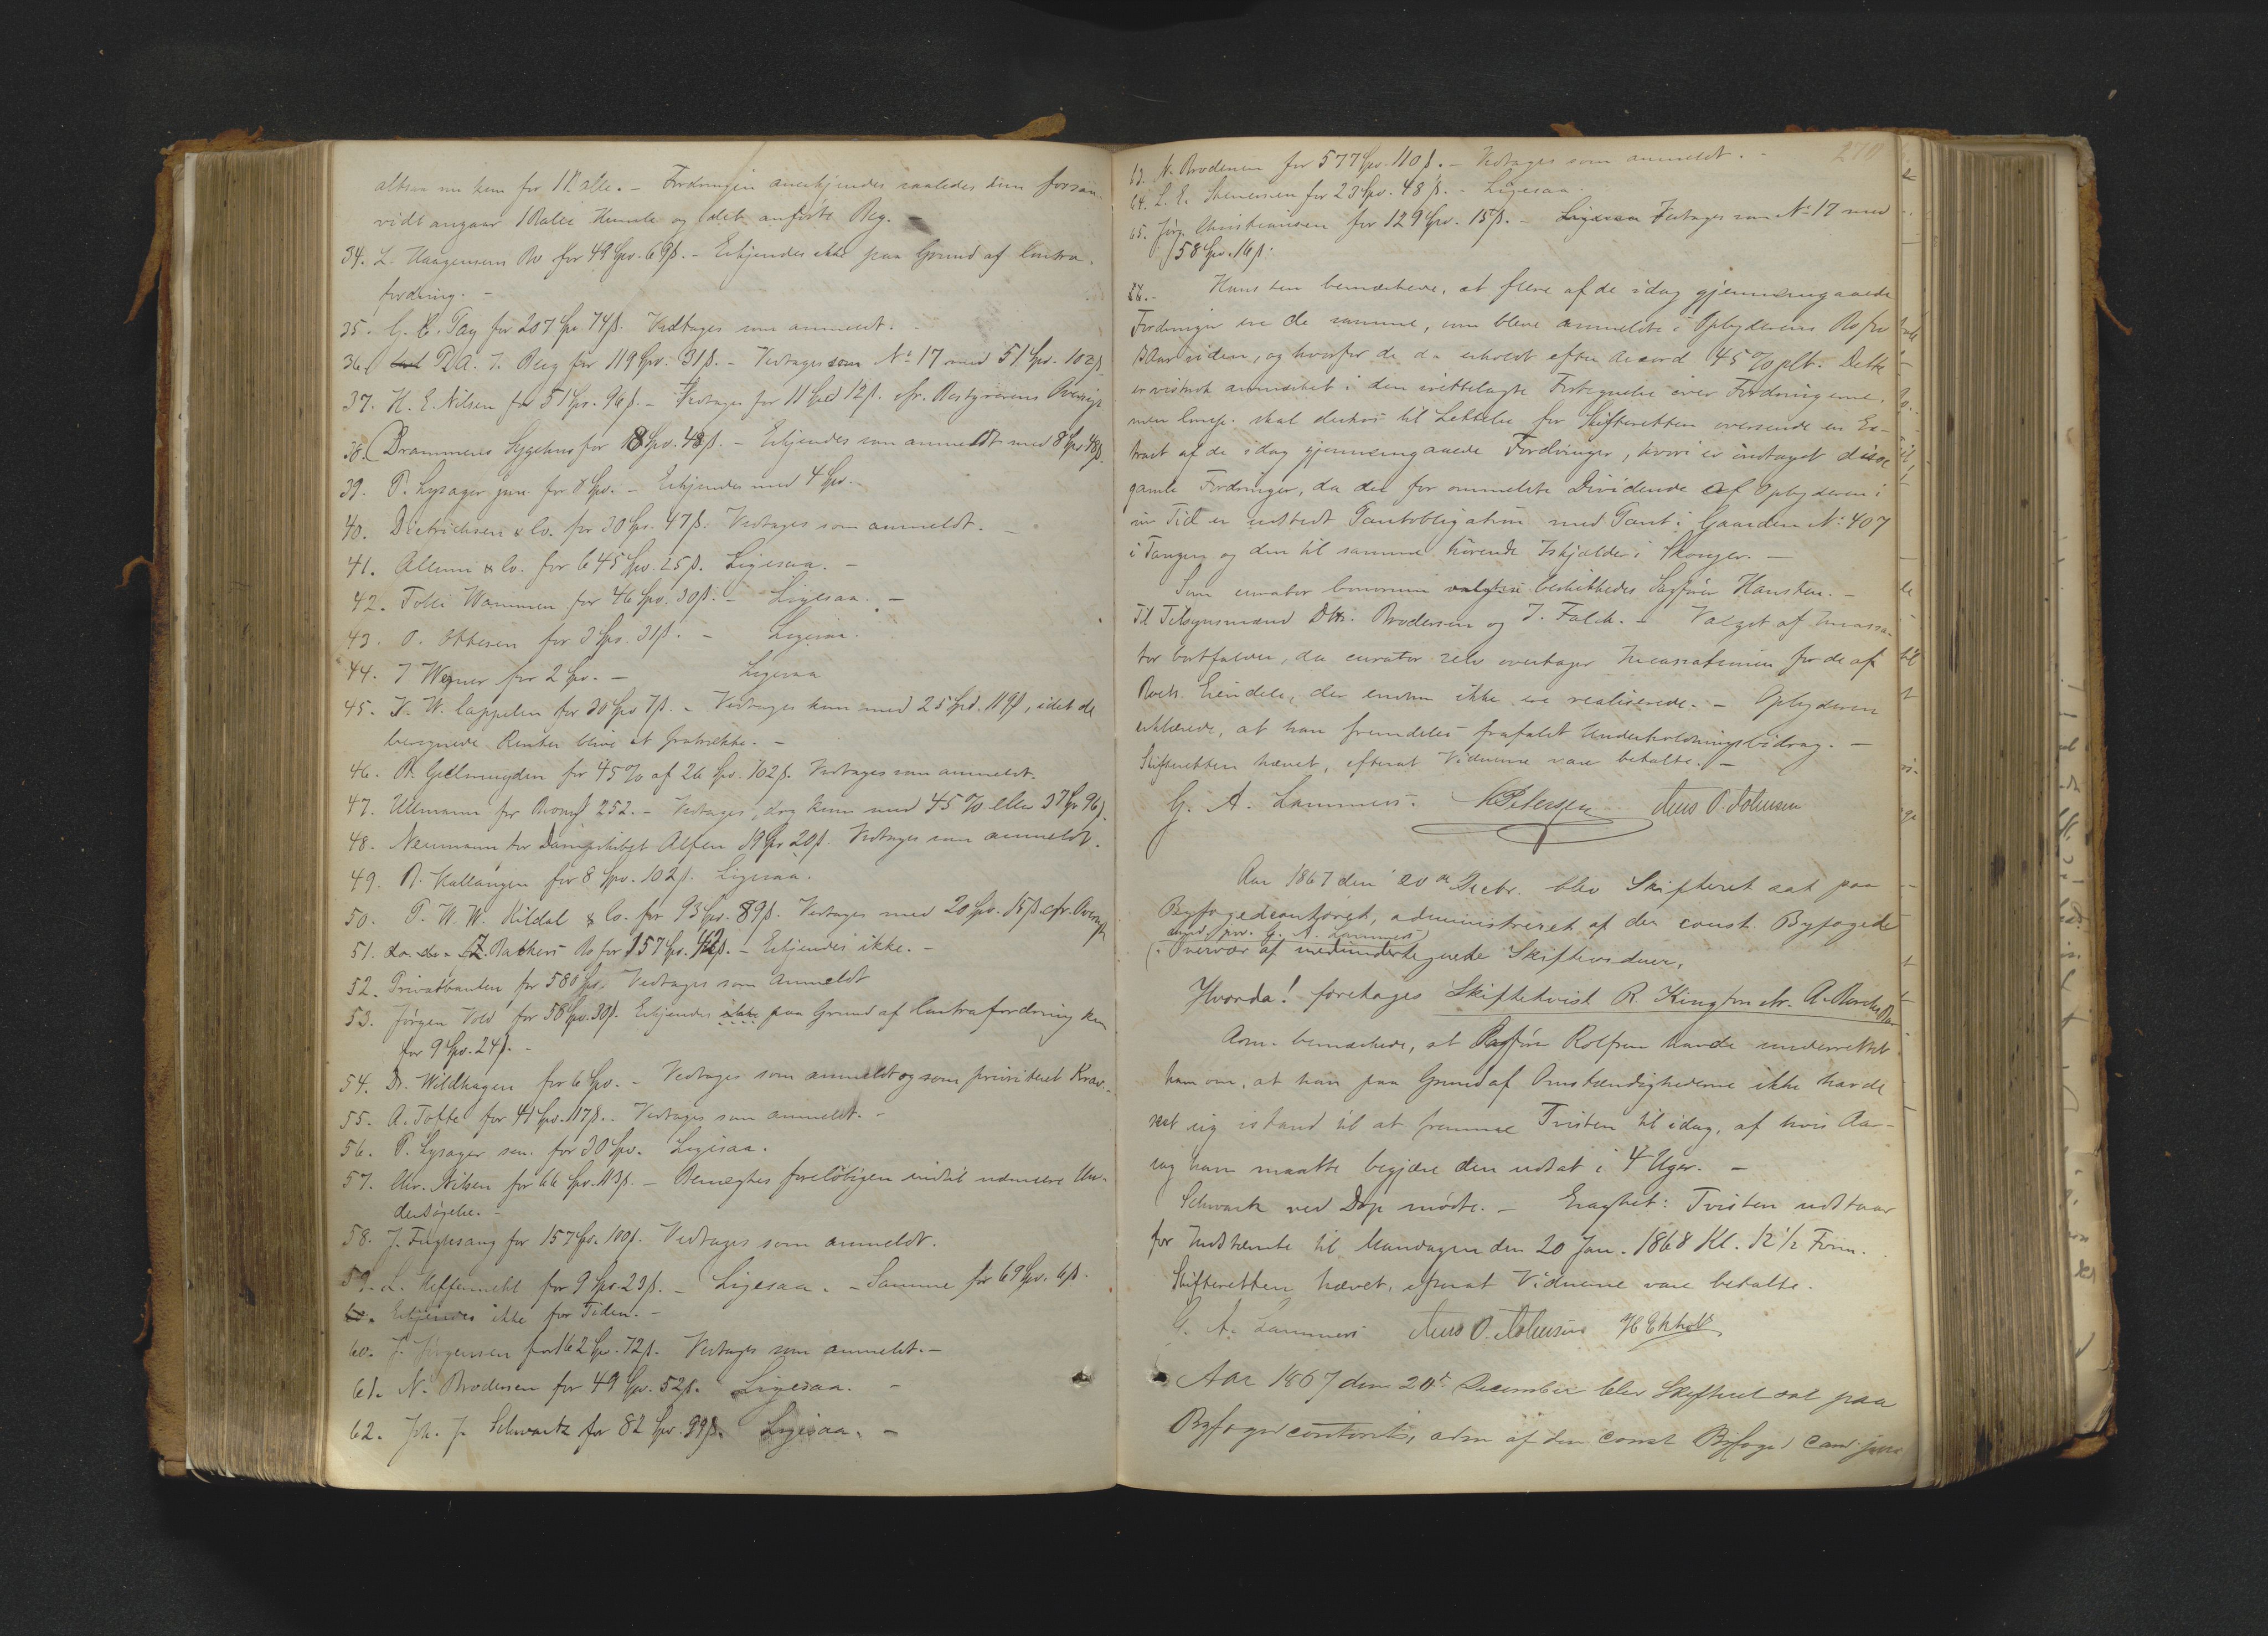 altsaa nu kun for 1 Palle. – Fordringen anerkjendes saaledes kun forsaa-
vidt angaar 1 Balle Humle og det anførte Beg.
34. L. Haagensens Bo for 49 Spd. 69 β. – Erkjendes ikke paa Grund af Contra-
fordring. –
35. G. C. Pay for 207 Spd. 74 β. Vedtages som anmeldt. –
36. P. A. J. Berg for 119 Spd. 31 β. – Vedtages som No 17 med 51 Spd. 102 β.
37. H. E. Nilsen for 51 Spd. 96 β. – Vedtages for 11 Spd 12 β. cfr. Bestyrerens Oversigt
38. Drammens Sygehus for 18 Spd. 48 β. – Erkjendes som anmeldt med 8 Spd. 48 β.
39. P. Lysager jun. for 8 Spd. – Erkjendes med 4 Spd. –
40. Dietrichsen & Co. for 30 Spd. 47 β. Vedtages som anmeldt. –
41. Allum & Co. for 645 Spd. 25 β. Ligesaa. –
42. Tolli Wammen for 46 Spd. 30 β. – Ligesaa. –
43. O. Ottesen for 3 Spd. 31 β. – Ligesaa.
44. J Wegner for 2 Spd. – Ligesaa
45. J. W. Cappelen for 30 Spd 7 β. – Vedtages kun med 25 Spd. 119 β, idet de
beregnede Renter blive at fratrække. –
46. Gellmuyden for 45 % af 26 Spd. 102 β. Vedtages som anmeldt.
47. Ullmann for 252. – Vedtages, dog kun med 45 % eller 37 Spd 96 β.
48. Neumann for Dampskibet Alfen 19 Spd 20 β. Vedtages som anmeldt.
49. Kallangen for 8 Spd. 102 β. Ligesaa.
50. P. W. W. Kildal & Co. for 93 Spd. 89 β. Vedtages med 20 Spd. 15 β. cfr. Oversigt
51. Bache's Bo for 157 Spd. 42 β. – Erkjendes ikke. –
52. Privatbanken for 580 Spd. Vedtages som Anmeldt
53. Jørgen Vold for 58 Spd. 30 β. Erkjendes ikke paa Grund af Contrafordring kun
for 9 Spd. 24 β. –
54. Dr. Wildhagen for 6 Spd. – Vedtages som anmeldt og som prioriteret Krav. –
55. A. Tofte for 41 Spd. 117 β. – Vedtages som anmeldt. –
56. P. Lysager sen. for 30 Spd. Ligesaa.
57. Chr. Nilsen for 66 Spd. 113 β. – Benægtes foreløbigen indtil nærmere Un-
dersøgelse. –
58. J. Fuglesang for 157 Spd. 100 β. Vedtages som anmeldt.
59. L. Heffermehl for 9 Spd. 23 β. – Ligesaa. – Samme for 69 Spd. 6 β.
Erkjendes ikke for Tiden. –
60. J. Jørgensen for 162 Spd. 72 β. Vedtages som anmeldt. –
61. N. Brodersen for 49 Spd. 52 β. Ligesaa. –
62. Joh. J. Schwartz for 82 Spd. 99 β. Ligesaa. –
270
63. N. Brodersen for 577 Spd. 110 β. – Vedtages som anmeldt. –
64. L. E. Steenersen for 23 Spd. 48 β. – Ligesaa.
65. Jørg. Christiansen for 129 Spd. 15 β. – Ligesaa Vedtages som No 17 med
58 Spd. 16 β.
Hansteen bemærkede, at flere af de idag gjennemgaaede
Fordringer ere de samme, som bleve anmeldte i Opbyderens Bo for
3 Aar siden, og hvorfor de da erholdt efter Accord 45 % pCt. Dette
er vistnok anmærket i den irettelagte Fortegnelse over Fordringerne,
men Comp. skal derhos til Lettelse for Skifteretten oversende en Ex-
tract af de idag gjennemgaaede Fordringer, hvori er indtaget disse
gamle Fordringer, da der for ommeldte Dividende af Opbyderen i
sin Tid er udstedt Panteobligation med Pant i Gaarden No 407
i Tangen og den til samme hørende Iskjælder i Skoger. –
Som curator bonorum beskikkedes Sagfører Hansteen. –
Til Tilsynsmænd DHrr. Brodersen og J. Falch. – Valget af Incassa-
tor bortfalder, da curator selv overtager Incassationen for de af
Boets Eiendele, der endnu ikke ere realiserede. – Opbyderen
erklærede, at han fremdeles frafaldt Underholdningsbidrag. –
Skifteretten hævet, efterat Vidnerne vare betalte. –
G. A. Lammers. N Petersen Jens O. Johnsen
Aar 1867 den 20de Decbr. blev Skifteret sat paa
Byfogedcontoret, administreret af den const. Byfoged
cand. jur. G. A. Lammers
i Overvær af medundertegnede Skiftevidner,
Hvorda! foretages Skiftetvist R. Kington ctr. A. Bo
Adm. bemærkede, at Sagfører Rolfsen havde underrettet
ham om, at han paa Grund af Omstændighederne ikke havde
seet sig istand til at fremme Tvisten til idag, af hvis Aar-
sag han maatte begjære den udsat i 4 Uger. –
Schwartz ved Dop mødte. – Eragtet: Tvisten udstaar
for Indstævnte til Mandagen den 20 Jan. 1868 Kl. 12 1/2 Form.
Skifteretten hævet, efterat Vidnerne vare betalte.
G. A. Lammers Jens O. Johnsen H Ekholt
Aar 1867 den 20de December blev Skifteret sat paa
Byfogedcontoret, adm af den const Byfoged Cand. juris